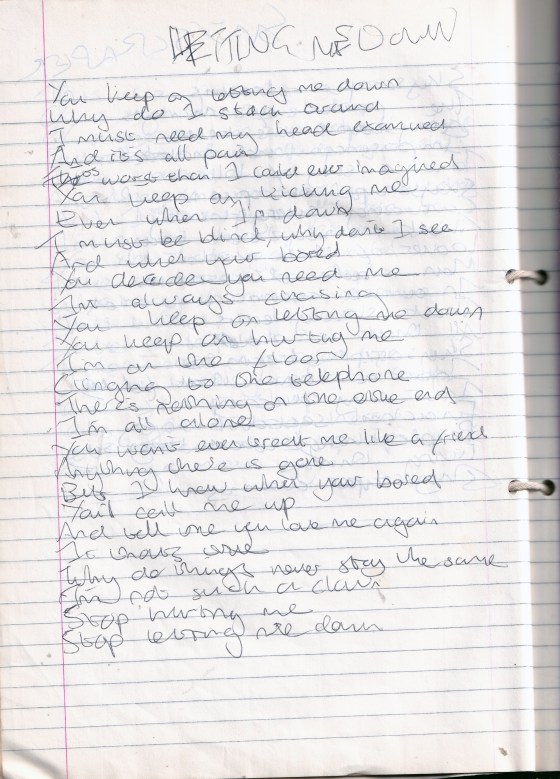 LETTING ME DOWN
You keep on letting me down
Why do I stack around
I must need my head examined
And it's all pain
worst than I could ever imagined
You keep on kicking me
Even when I'm down
I must be blind, why don't I see
And when your bored
You decide you need me
I'm always crusing
You keep on letting me down
You keep on hurting me
I'm on the floor
Clinging to the telephone
There's nothing on the other end
I'm all alone
You won't even treat me like a friend
Anything there is gone
But I know when your bored
You'll call me up
And tell me you love me again
Why do things never stay the same
I'm not such a clown
Stop hurting me
Stop letting me down